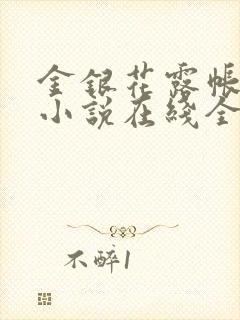 金銀花露帳
小説在綫全
不醉1